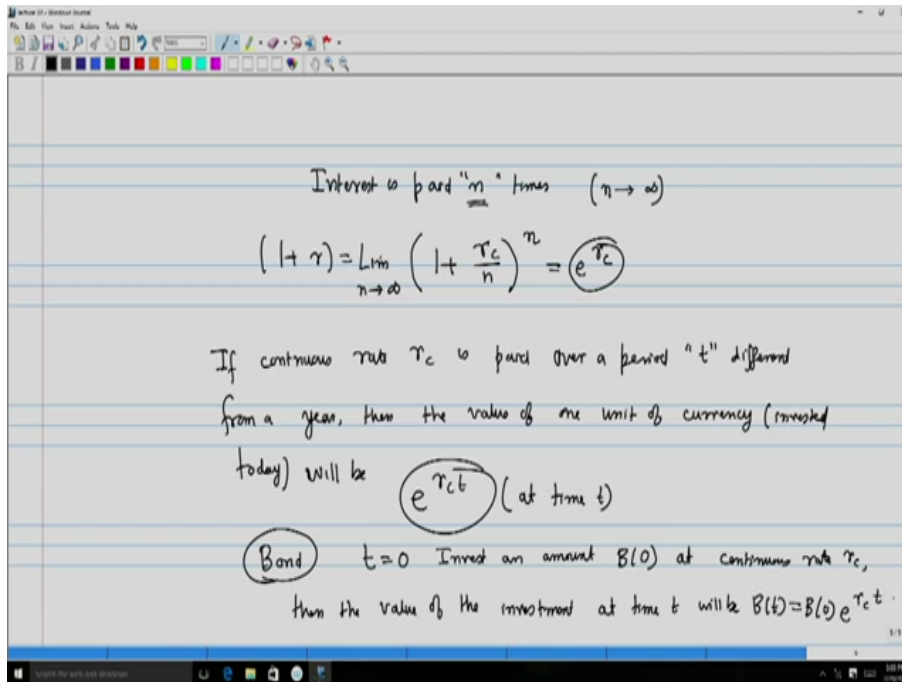 File Edit View Insert Actions Tools Help
B I
Interest is paid "n" times (n → ∞)
(1 + r) = Lim n→∞ (1 + r_c/n)^n = e^{r_c}
If continuous rate r_c is paid over a period "t" different
from a year, then the value of one unit of currency (invested
today) will be e^{r_c t} (at time t)
Bond t = 0 Invest an amount B(0) at continuous rate r_c,
then the value of the investment at time t will be B(t) = B(0) e^{r_c t}.
Search the web and Windows